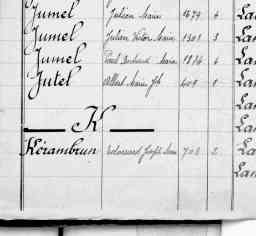 Jumel Julien Marie 1679 4 La
Jumel Julien Victor Marie 1303 3 La
Jumel Paul Marie 1886 4 La
Jutel Albert Marie Jh 409 1 La
Lan
K Lan
Kérambrun Edouard Joseph Marie 708 2 La
Lan